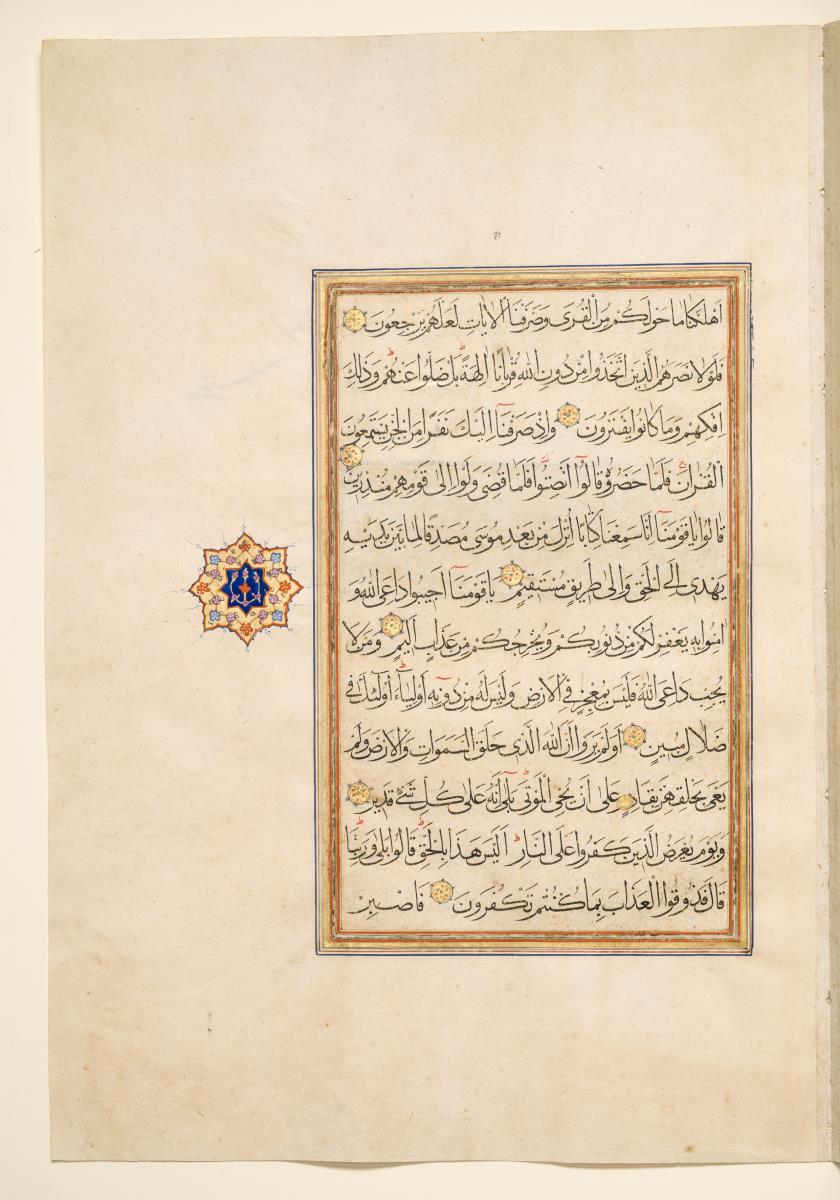 اَهْلَكْنَا مَا حَوْلَكُمْ مِنَ الْقُرٰى وَصَرَّفْنَا الْاٰيَاتِ لَعَلَّهُمْ يَرْجِعُونَ
فَلَوْلَا نَصَرَهُمُ الَّذِينَ اتَّخَذُوا مِنْ دُونِ اللّٰهِ قُرْبَانًا اٰلِهَةً بَلْ ضَلُّوا عَنْهُمْ وَذٰلِكَ
اِفْكُهُمْ وَمَا كَانُوا يَفْتَرُونَ وَاِذْ صَرَفْنَا اِلَيْكَ نَفَرًا مِنَ الْجِنِّ يَسْتَمِعُونَ
الْقُرْاٰنَ فَلَمَّا حَضَرُوهُ قَالُوا اَنْصِتُوا فَلَمَّا قُضِىَ وَلَّوْا اِلٰى قَوْمِهِمْ مُنْذِرِينَ
قَالُوا يَا قَوْمَنَا اِنَّا سَمِعْنَا كِتَابًا اُنْزِلَ مِنْ بَعْدِ مُوسٰى مُصَدِّقًا لِمَا بَيْنَ يَدَيْهِ
يَهْدِى اِلَى الْحَقِّ وَاِلٰى طَرِيقٍ مُسْتَقِيمٍ يَا قَوْمَنَا اَجِيبُوا دَاعِىَ اللّٰهِ وَ
اٰمِنُوا بِهِ يَغْفِرْ لَكُمْ مِنْ ذُنُوبِكُمْ وَيُجِرْكُمْ مِنْ عَذَابٍ اَلِيمٍ وَمَنْ لَا
يُجِبْ دَاعِىَ اللّٰهِ فَلَيْسَ بِمُعْجِزٍ فِى الْاَرْضِ وَلَيْسَ لَهُ مِنْ دُونِهِ اَوْلِيَاءُ اُولٰئِكَ فِى
ضَلَالٍ مُبِينٍ اَوَلَمْ يَرَوْا اَنَّ اللّٰهَ الَّذِى خَلَقَ السَّمٰوَاتِ وَالْاَرْضَ وَلَمْ
يَعْىَ بِخَلْقِهِنَّ بِقَادِرٍ عَلٰى اَنْ يُحْيِىَ الْمَوْتٰى بَلٰى اِنَّهُ عَلٰى كُلِّ شَىْءٍ قَدِيرٌ
وَيَوْمَ يُعْرَضُ الَّذِينَ كَفَرُوا عَلَى النَّارِ اَلَيْسَ هٰذَا بِالْحَقِّ قَالُوا بَلٰى وَرَبِّنَا
قَالَ فَذُوقُوا الْعَذَابَ بِمَا كُنْتُمْ تَكْفُرُونَ فَاصْبِرْ